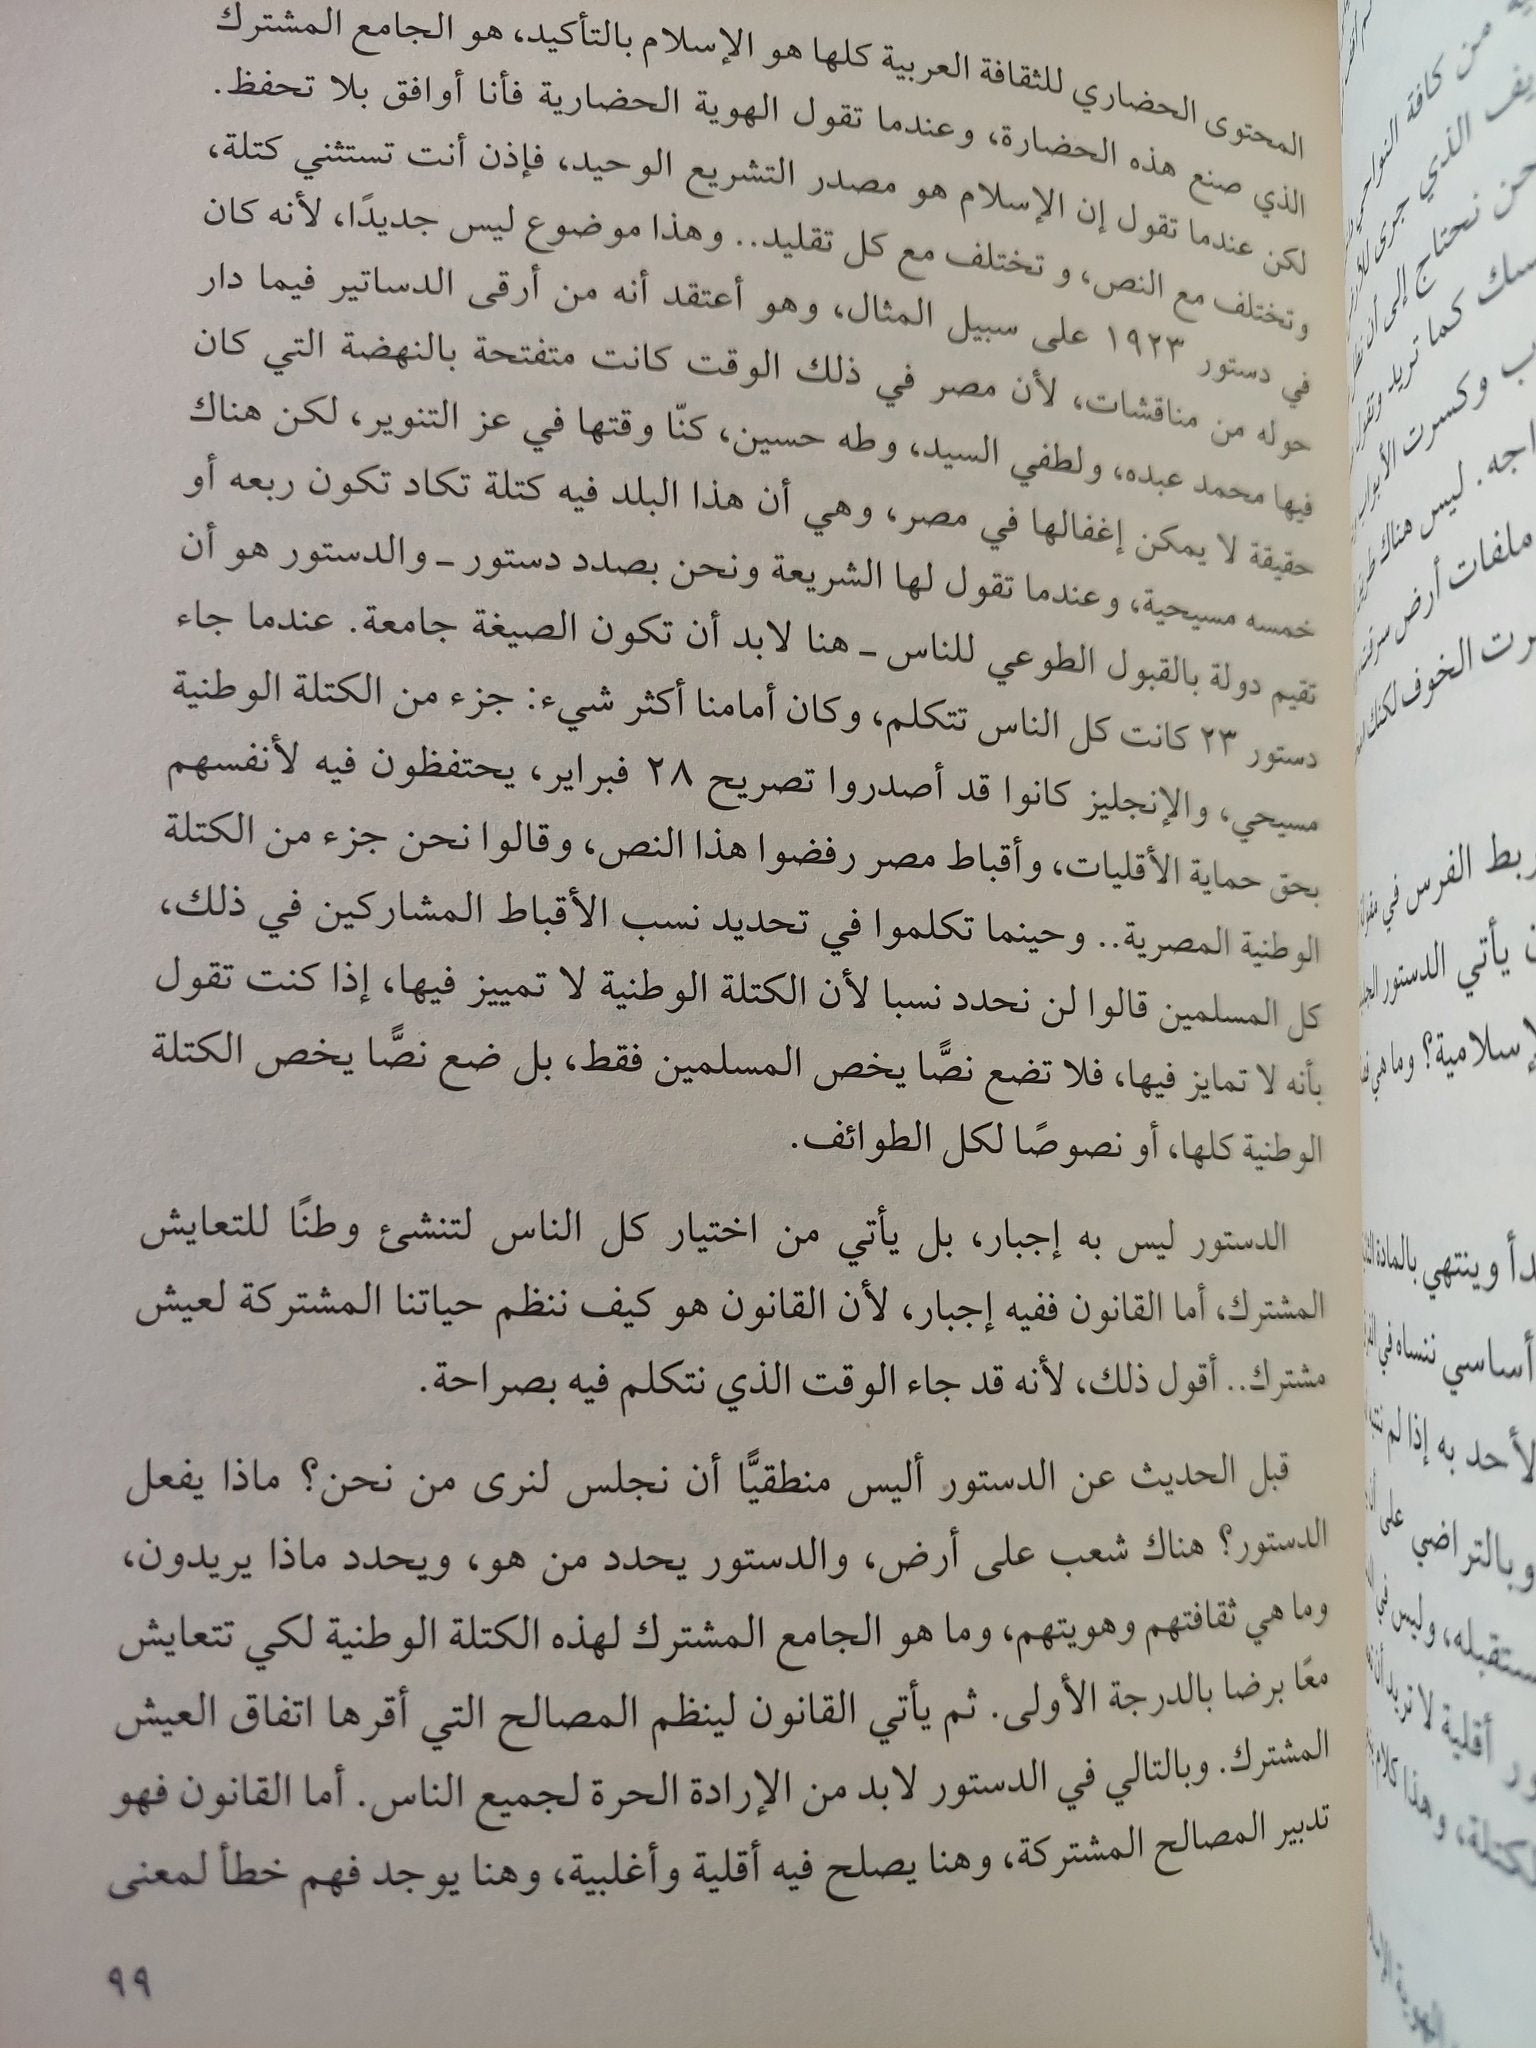 المحتوى الحضاري للثقافة العربية كلها هو الإسلام بالتأكيد، هو الجامع المشترك
الذي صنع هذه الحضارة، وعندما تقول الهوية الحضارية فأنا أوافق بلا تحفظ.
لكن عندما تقول إن الإسلام هو مصدر التشريع الوحيد، فإذن أنت تستثني كتلة،
وتختلف مع النص، و تختلف مع كل تقليد.. وهذا موضوع ليس جديدًا، لأنه كان
في دستور ١٩٢٣ على سبيل المثال، وهو أعتقد أنه من أرقى الدساتير فيما دار
حوله من مناقشات، لأن مصر في ذلك الوقت كانت متفتحة بالنهضة التي كان
فيها محمد عبده، ولطفي السيد، وطه حسين، كنّا وقتها في عز التنوير، لكن هناك
حقيقة لا يمكن إغفالها في مصر، وهي أن هذا البلد فيه كتلة تكاد تكون ربعه أو
خمسه مسيحية، وعندما تقول لها الشريعة ونحن بصدد دستور ـ والدستور هو أن
تقيم دولة بالقبول الطوعي للناس ـ هنا لابد أن تكون الصيغة جامعة. عندما جاء
دستور ٢٣ كانت كل الناس تتكلم، وكان أمامنا أكثر شيء: جزء من الكتلة الوطنية
مسيحي، والإنجليز كانوا قد أصدروا تصريح ٢٨ فبراير، يحتفظون فيه لأنفسهم
بحق حماية الأقليات، وأقباط مصر رفضوا هذا النص، وقالوا نحن جزء من الكتلة
الوطنية المصرية.. وحينما تكلموا في تحديد نسب الأقباط المشاركين في ذلك،
كل المسلمين قالوا لن نحدد نسبا لأن الكتلة الوطنية لا تمييز فيها، إذا كنت تقول
بأنه لا تمايز فيها، فلا تضع نصًّا يخص المسلمين فقط، بل ضع نصًّا يخص الكتلة
الوطنية كلها، أو نصوصًا لكل الطوائف.
الدستور ليس به إجبار، بل يأتي من اختيار كل الناس لتنشئ وطنًا للتعايش
المشترك، أما القانون ففيه إجبار، لأن القانون هو كيف ننظم حياتنا المشتركة لعيش
مشترك.. أقول ذلك، لأنه قد جاء الوقت الذي نتكلم فيه بصراحة.
قبل الحديث عن الدستور أليس منطقيًّا أن نجلس لنرى من نحن؟ ماذا يفعل
الدستور؟ هناك شعب على أرض، والدستور يحدد من هو، ويحدد ماذا يريدون،
وما هي ثقافتهم وهويتهم، وما هو الجامع المشترك لهذه الكتلة الوطنية لكي تتعايش
معًا برضا بالدرجة الأولى. ثم يأتي القانون لينظم المصالح التي أقرها اتفاق العيش
المشترك. وبالتالي في الدستور لابد من الإرادة الحرة لجميع الناس. أما القانون فهو
تدبير المصالح المشتركة، وهنا يصلح فيه أقلية وأغلبية، وهنا يوجد فهم خطأ لمعنى
٩٩
من كافة النواحي
الذي جرى
نحتاج إلى أن
كما تريد
وكسرت الأبواب
ليس هناك
ملفات أرض
الخوف لكنك
الفرس في
يأتي الدستور
وما هي
وينتهي بالمادة
أساسي ننساه في
لأحد به إذا لم
وبالتراضي على
وليس في
أقلية لا تريد أن
وهذا كلام